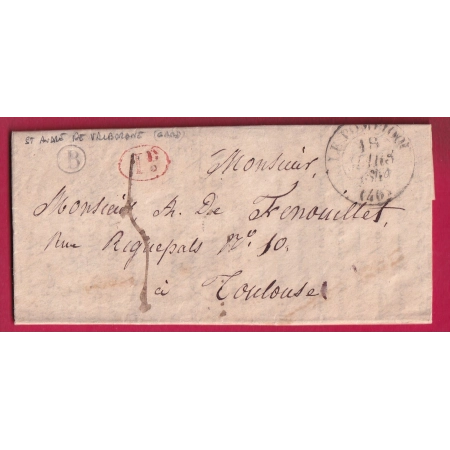 ST ANDRÉ DE VALBORGNE (GARD)
B
1 D
LE POMPIDOU
18
(46)
Monsieur,
Monsieur A. De Frenouillet,
Rue Riquepals N.º 10.
à
Toulouse